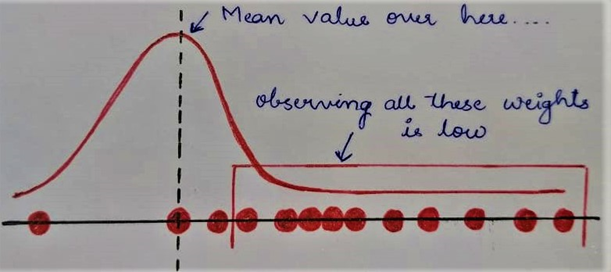 Mean value over here....
observing all these weights
is low